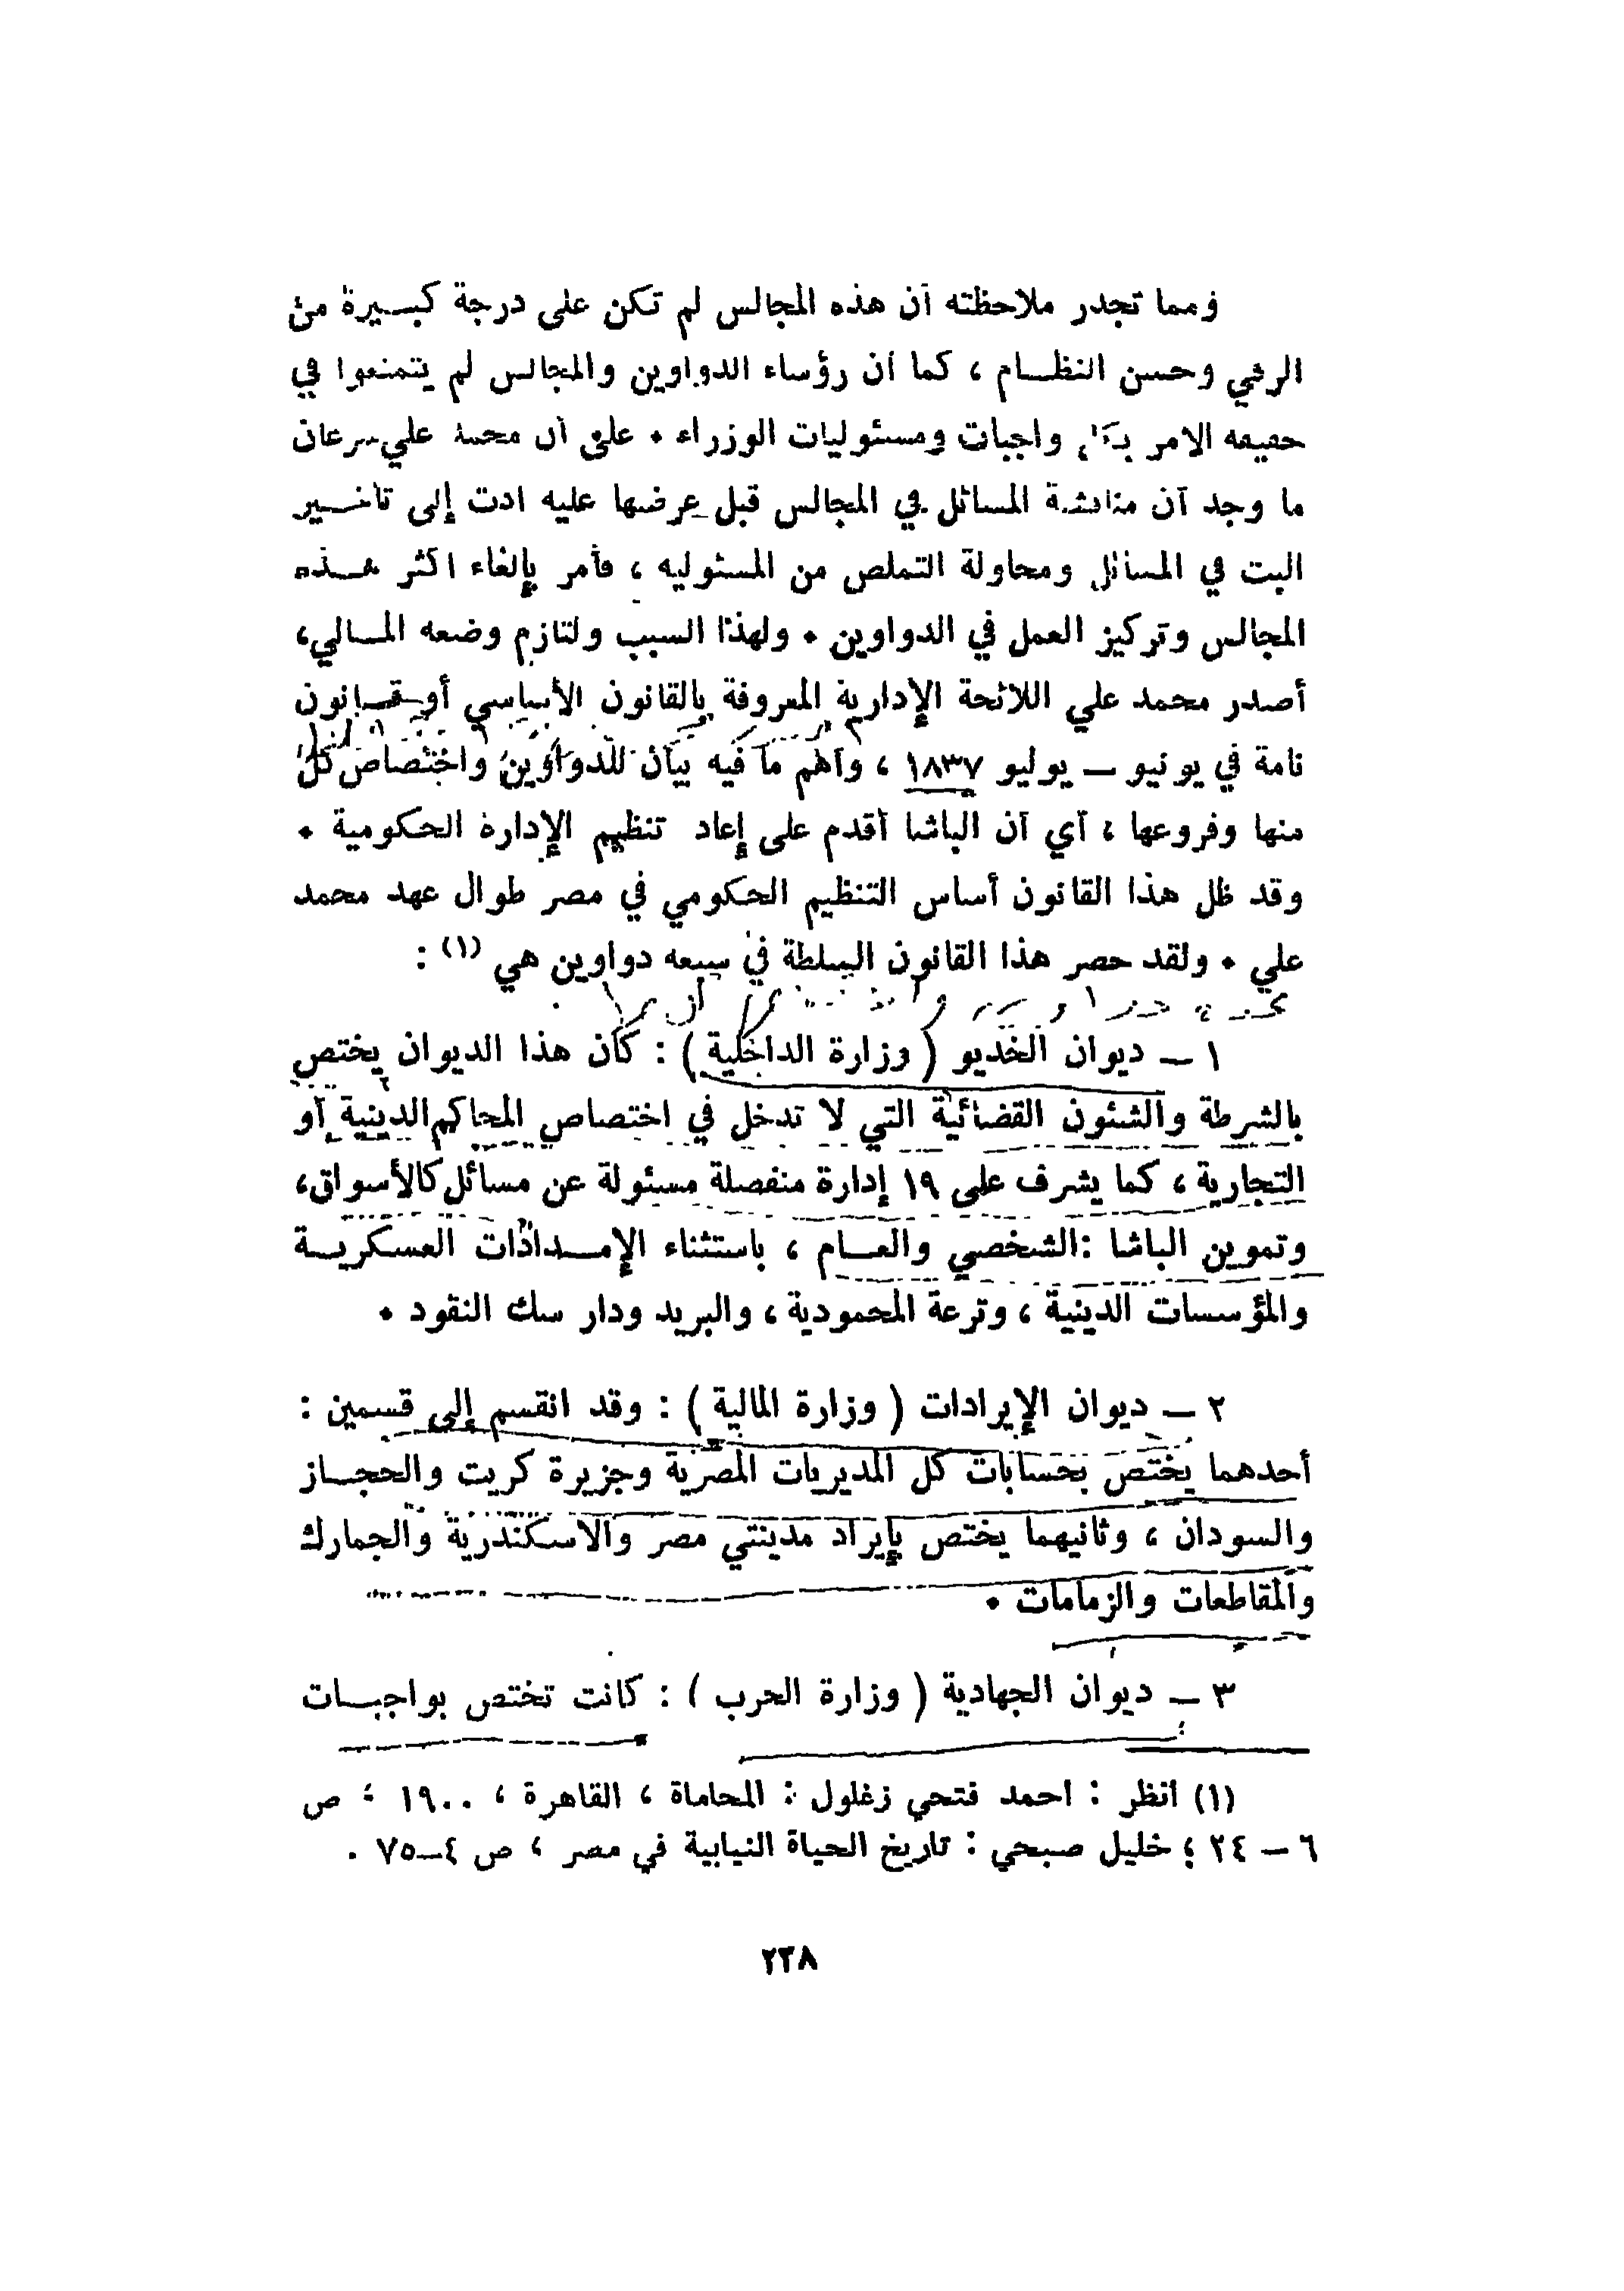 ومما تجدر ملاحظته أن هذه المجالس لم تكن على درجة كبسيرة من
الرقي وحسن النظام ، كما أن رؤساء الدواوين والمجالس لم يتمتعوا في
حقيقة الأمر واجبات ومسئوليات الوزراء . على أن محمد علي سرعان
ما وجد أن مناقشة المسائل في المجالس قبل عرضها عليه ادت إلى تأخير
البت في المسائل ومحاولة التملص من المسئوليه ، فأمر بإلغاء اكثر هذه
المجالس وتركيز العمل في الدواوين . ولهذا السبب ولتازم وضعه المالي،
أصدر محمد علي اللائحة الإدارية المعروفة بالقانون الأساسي أو قانون
نامة في يونيو — يوليو ١٨٣٧ ، وأهم ما فيه بيان للدواوين واختصاص كل
منها وفروعها ، أي أن الباشا أقدم على إعاد تنظيم الإدارة الحكومية .
وقد ظل هذا القانون أساس التنظيم الحكومي في مصر طوال عهد محمد
علي . ولقد حصر هذا القانون السلطة في سبعه دواوين هي (١) :
١ — ديوان الخديو ( وزارة الداخلية ) : كان هذا الديوان يختص
بالشرطة والشئون القضائية التي لا تدخل في اختصاص المحاكم الدينية أو
التجارية ، كما يشرف على ١٩ إدارة منفصلة مسئولة عن مسائل كالأسواق،
وتموين الباشا الشخصي والعام ، باستثناء الإمدادات العسكرية
والمؤسسات الدينية ، وترعة المحمودية ، والبريد ودار سك النقود .
٢ — ديوان الإيرادات ( وزارة المالية ) : وقد انقسم إلى قسمين :
أحدهما يختص بحسابات كل المديريات المصرية وجزيرة كريت والحجاز
والسودان ، وثانيهما يختص بإيراد مدينتي مصر والاسكندرية والجمارك
والمقاطعات والزمامات .
٣ — ديوان الجهادية ( وزارة الحرب ) : كانت تختص بواجبات
(١) أنظر : احمد فتحي زغلول : المحاماة ، القاهرة ، ١٩٠٠ ، ص
٦ — ٢٤ ؛ خليل صبحي : تاريخ الحياة النيابية في مصر ، ص ٤—٧٥ .
٢٣٨